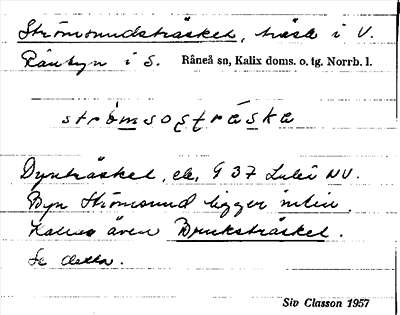 Strömsundsträsket, träsk i V.
Rånbyn i S. Råneå sn, Kalix doms. o. tg. Norrb. l.
Dynträsket, ek, 9 37 Luleå NV.
Byn Strömsund ligger intill.
Kallas även Bruksträsket.
Se detta.
Siv Classon 1957